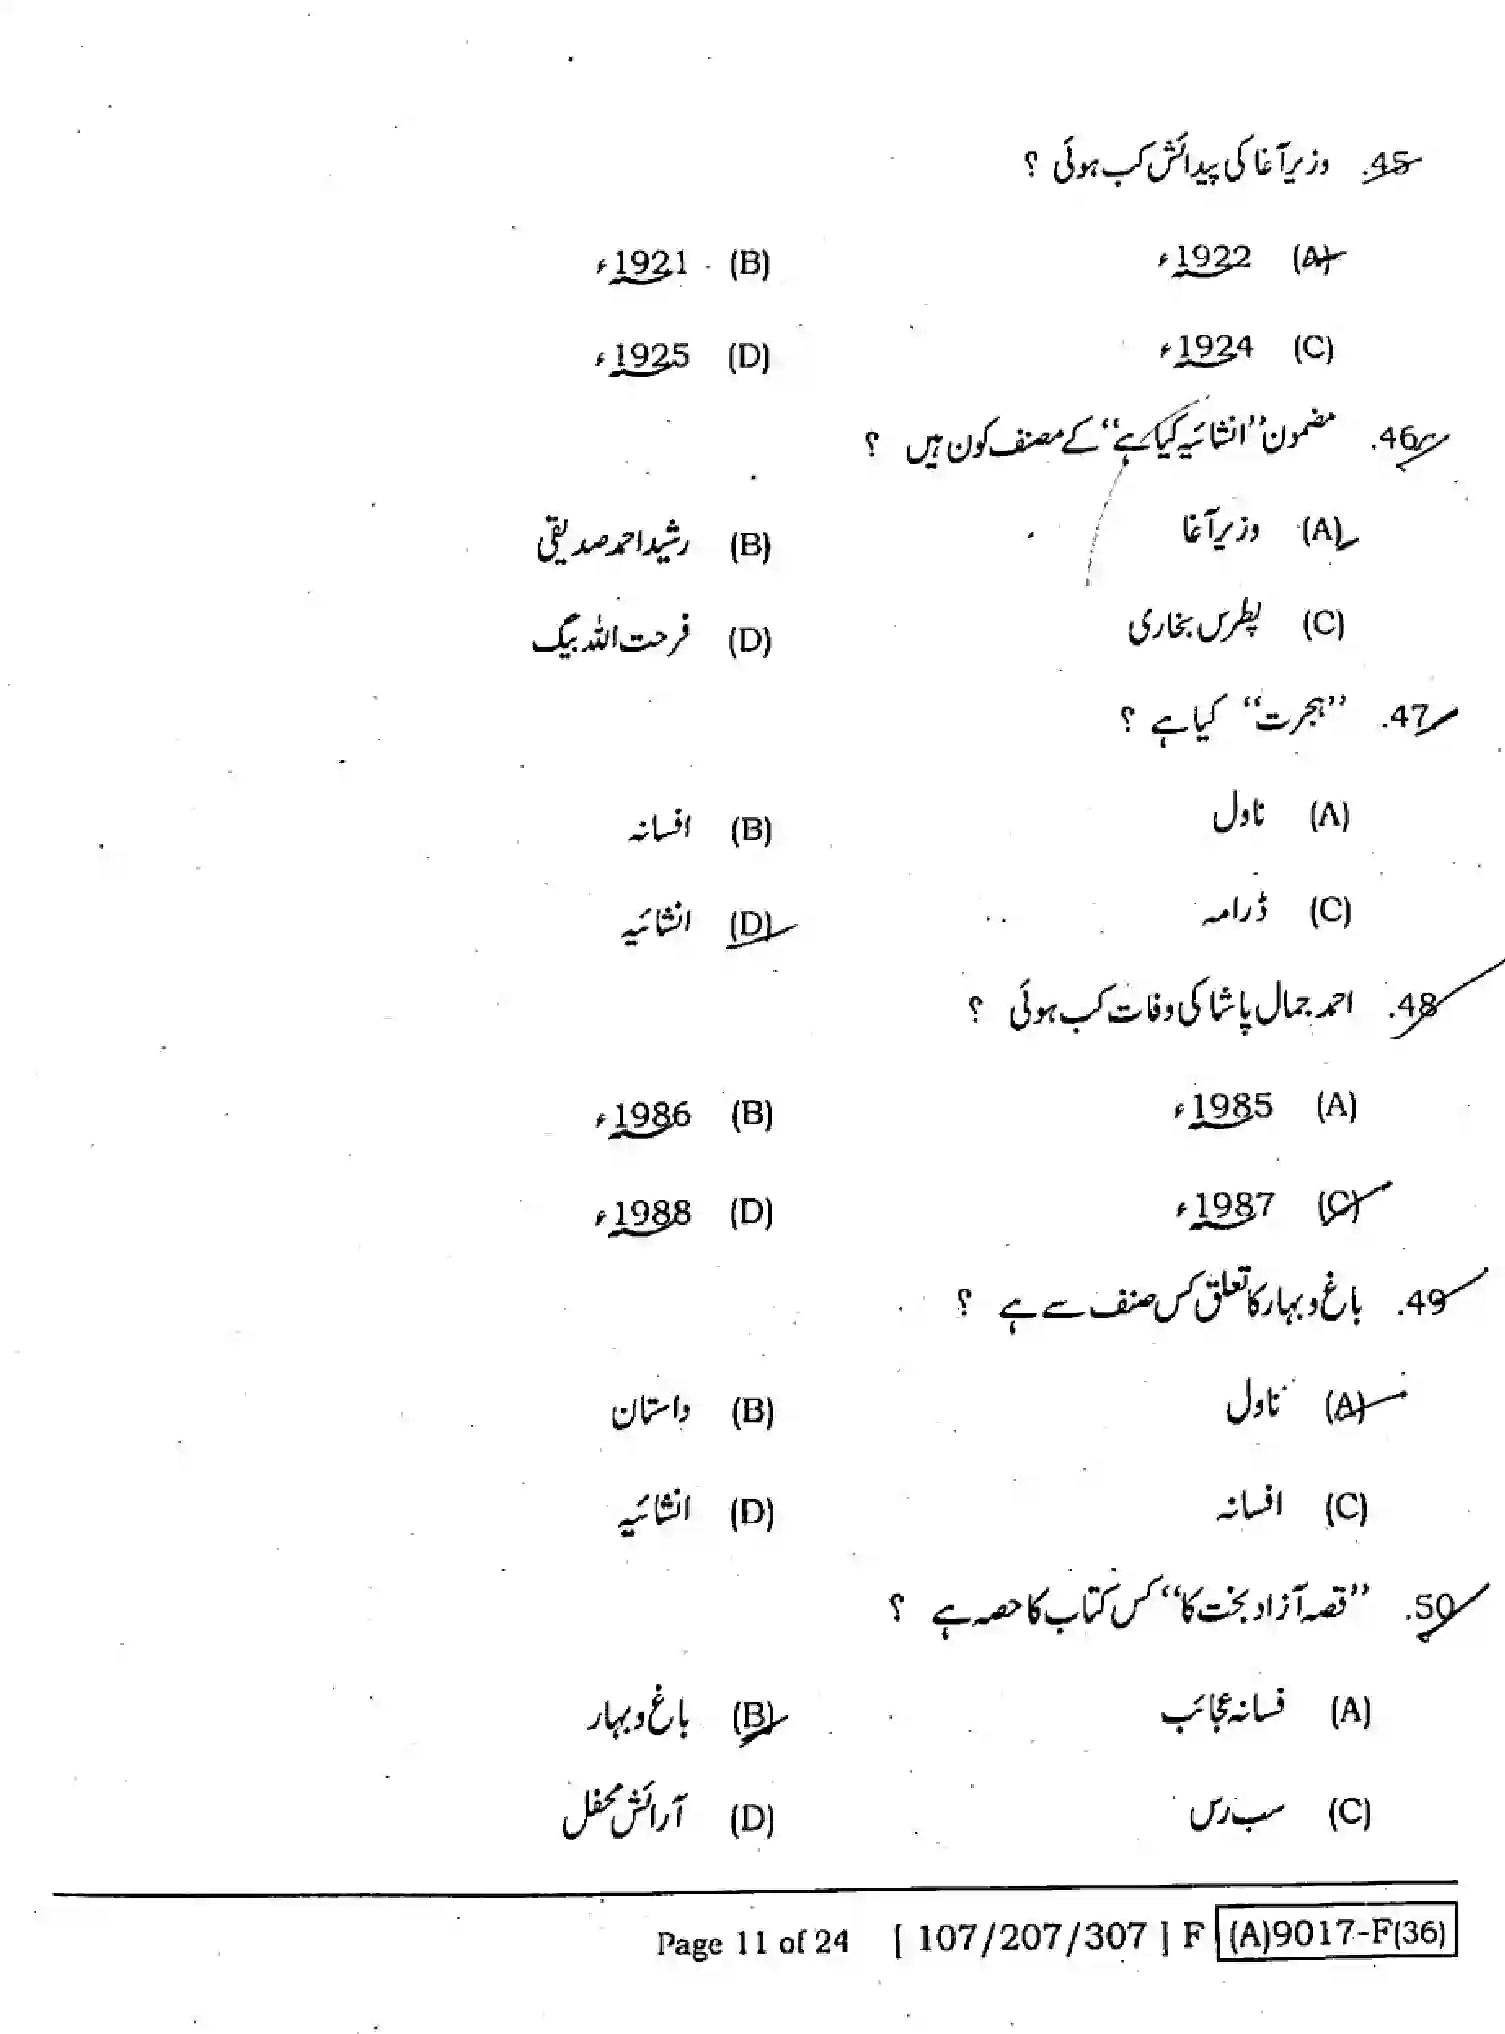 45. وزیر آغا کی پیدائش کب ہوئی ؟
(A) 1922ء (B) 1921ء
(C) 1924ء (D) 1925ء
46. مضمون ”انشائیہ کیا ہے“ کے مصنف کون ہیں ؟
(A) وزیر آغا (B) رشید احمد صدیقی
(C) پطرس بخاری (D) فرحت اللہ بیگ
47. ”ہجرت“ کیا ہے ؟
(A) ناول (B) افسانہ
(C) ڈرامہ (D) انشائیہ
48. احمد جمال پاشا کی وفات کب ہوئی ؟
(A) 1985ء (B) 1986ء
(C) 1987ء (D) 1988ء
49. باغ و بہار کا تعلق کس صنف سے ہے ؟
(A) ناول (B) داستان
(C) افسانہ (D) انشائیہ
50. ”قصہ آزاد بخت کا“ کس کتاب کا حصہ ہے ؟
(A) فسانہ عجائب (B) باغ و بہار
(C) سب رس (D) آرائش محفل
Page 11 of 24 [ 107/207/307 ] F (A)9017-F(36)